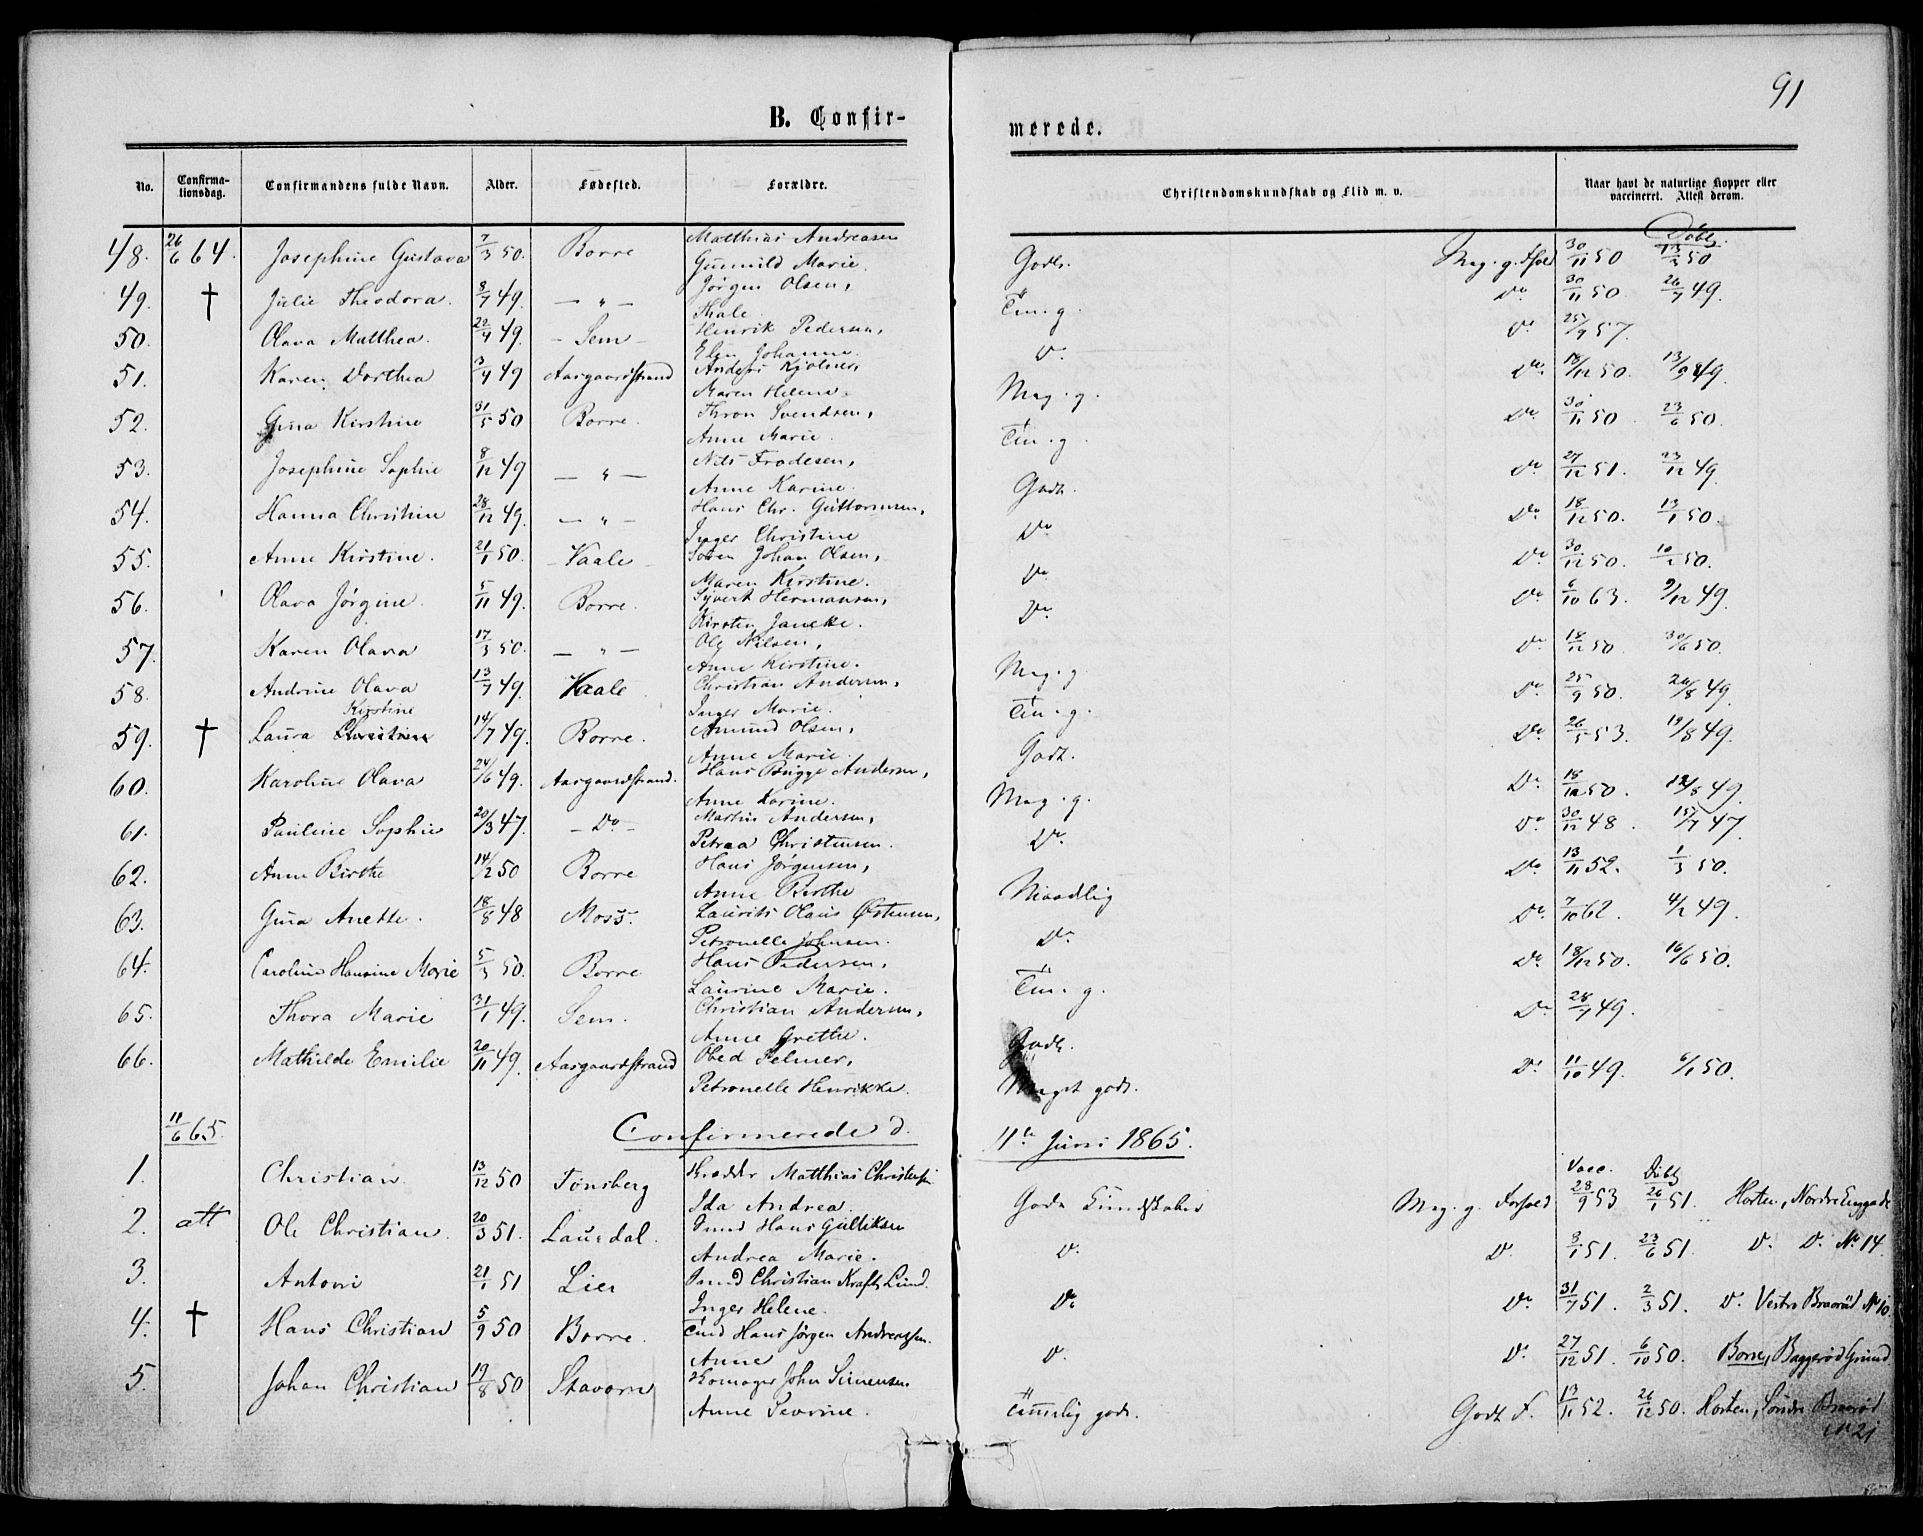 91
B. Confir-
merede.
No. Confirma-tionsdag. Confirmandens fulde Navn. Alder. Fødested. Forældre. Christendomskundskab og Flid m. v. Naar havt de naturlige Kopper eller vaccineret. Attest derom.
Døbt
48. 26/6 64. Josephine Gustava 7/3 50. Borre Matthias Andreasen Gunnild Marie. Godt. Meg. g. Forhold 30/11 50 13/3 50
49. † Julie Theodora. 8/7 49. — " — Jörgen Olsen, Thale. Tem. g. Do 30/11 50. 26/7 49.
50. Olava Matthea. 22/4 49. – Sem – Henrik Pedersen, Elen Johanne. Do. Do 25/9 57.
51. Karen Dorthea 3/4 49 Aasgaardstrand Anders Kjølner, Maren Helene. Meg. g. Do. 18/12 50. 13/9 49.
52. Gina Kirstine 31/5 50 Borre. Thron Svendsen, Anne Marie. Tem. g. Do 30/11 50 23/6 50.
53. Josephine Sophie 8/12 49 — " — Nils Frodesen, Anne Karine. Godt. Do 27/12 51. 23/12 49.
54. Hanna Christine 28/12 49. — " — Hans Chr. Guttormsen, Inger Christine Do Do 18/12 50. 13/1 50.
55. Anne Kirstine. 21/1 50. – Vaale – Søren Johan Olsen, Maren Kirstine. Do Do 30/12 50. 10/2 50.
56. Olava Jørgine. 5/11 49. Borre. Syvert Hermansen, Kirsten Janekke. Do. Do 6/10 63. 9/12 49.
57. Karen Olava 17/3 50. — " — Ole Nilsen, Anne Kirstine. Meg. g Do 18/12 50 30/6 50.
58. Andrine Olava 13/7 49. Vaale. Christian Andersen, Inger Marie. Tem. g. Do 25/9 50. 26/8 49.
Kirstine
59. † Laura Christine 14/7 49. Borre. Amund Olsen, Anne Marie Godt. Do. 26/5 53. 19/8 49.
60. Karoline Olava 24/6 49. Aasgaardstrand. Hans Brygge Andersen, Anne Karine. Meg. g. Do 18/12 50. 12/8 49.
61. Pauline Sophie 20/3 47. – Do – Martin Andersen, Petrea Christensen. Do Do 30/12 48. 15/7 47.
62. Anne Birthe 14/2 50 Borre Hans Jørgensen, Anne Birthe Maadlig Do 13/11 52. 1/3 50.
63. Gina Anette. 18/8 48 Moss. Laurits Olaus Østensen, Petronelle Johnsen. Do. Do 7/10 62. 4/2 49.
64. Caroline Hansine Marie 5/3 50. Borre Hans Pedersen, Laurine Marie. Tem. g. Do. 18/12 50. 16/6 50.
65. Thora Marie 31/1 49. Sem. Christian Andersen, Anne Grethe. Godt. Do 28/7 49.
66. Mathilde Emilie 20/11 49. Aasgaardstrand Obed Pelmer, Petronelle Henrikke. Meget godt. Do 11/10 49. 6/1 50.
11/6 65. Confirmerede d. 11te Juni 1865.
Vacc. Døbt
1. Christian 13/12 50 Tönsberg Matthias Christensen Ida Andrea. Gode Kundskaber Meg. g. Forhold 28/9 53 26/1 51. Horten, Nordre Enggade
2. att Ole Christian. 20/3 51. Laurdal. Hans Gulliksen Andrea Marie. Do. Do. 8/1 51. 23/6 51. Do. Do. No 14.
3. Antoni 21/1 51 Lier Christian Krafts Lund. Inger Helene. Do Do. 31/7 51. 2/3 51. Do. Vestre Braarød No 10
4. † Hans Christian 5/9 50 Borre. Hans Jørgen Andreassen. Anne Do. Do. 27/12 51. 6/10 50. Borre, Baggerød Grund
5. Johan Christian 19/8 50 Stavern John Simensen Anne Severine. Temmelig godt. Godt F. 13/11 52. 26/12 50. Horten, Søndre Braarød No 21